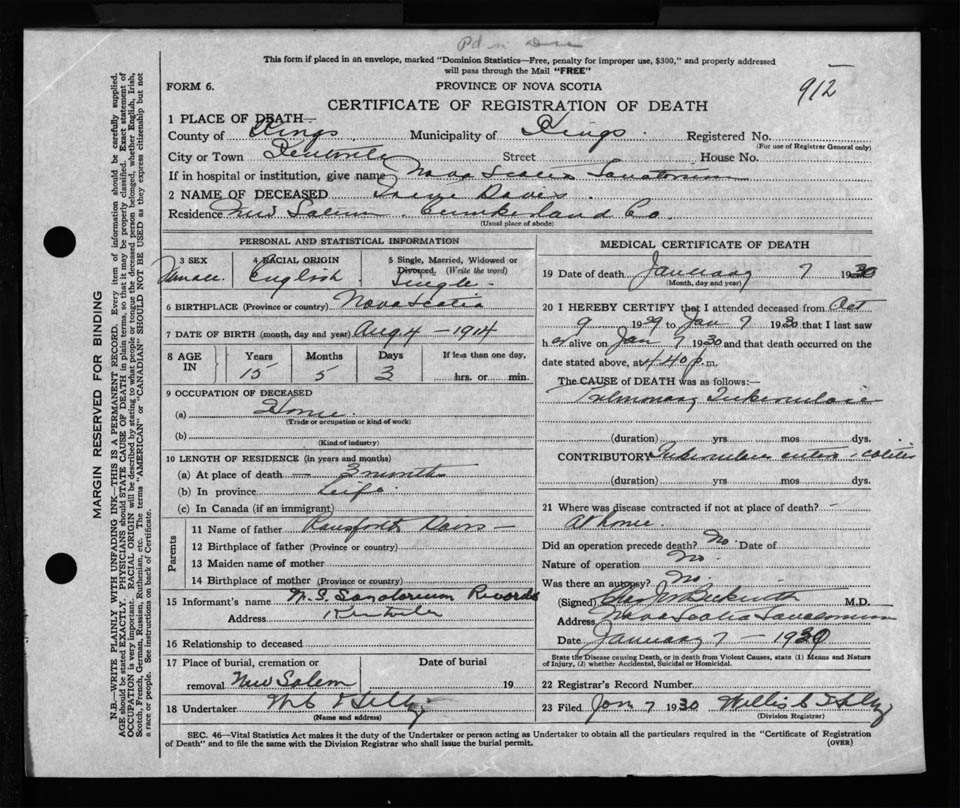 This form if placed in an envelope, marked "Dominion Statistics—Free, penalty for improper use, $300," and properly addressed
will pass through the Mail "FREE"
912
FORM 6.
PROVINCE OF NOVA SCOTIA
CERTIFICATE OF REGISTRATION OF DEATH
1 PLACE OF DEATH—
County of Kings Municipality of Kings Registered No.
(For use of Registrar General only)
City or Town Kentville Street House No.
If in hospital or institution, give name Nova Scotia Sanatorium
2 NAME OF DECEASED Davis
Residence New Salem Cumberland Co.
(Usual place of abode)
PERSONAL AND STATISTICAL INFORMATION
3 SEX
Female
4 RACIAL ORIGIN
English
5 Single, Married, Widowed or
Divorced. (Write the word)
Single
6 BIRTHPLACE (Province or country) Nova Scotia
7 DATE OF BIRTH (month, day and year) Aug 4 – 1914
8 AGE
IN
Years Months Days If less than one day,
15 5 3 hrs. or min.
9 OCCUPATION OF DECEASED
(a) Home
(Trade or occupation or kind of work)
(b)
(Kind of industry)
10 LENGTH OF RESIDENCE (in years and months)
(a) At place of death 3 months
(b) In province Life
(c) In Canada (if an immigrant)
Parents
11 Name of father Davis
12 Birthplace of father (Province or country)
13 Maiden name of mother
14 Birthplace of mother (Province or country)
15 Informant's name N.S. Sanatorium Records
Address Kentville
16 Relationship to deceased
17 Place of burial, cremation or
removal New Salem
Date of burial
19
18 Undertaker
(Name and address)
MEDICAL CERTIFICATE OF DEATH
19 Date of death January 7 1930
(Month, day and year)
20 I HEREBY CERTIFY that I attended deceased from Oct
9 1929 to Jan 7 1930 that I last saw
h er alive on Jan 7 1930 and that death occurred on the
date stated above, at 4.40 p. m.
The CAUSE of DEATH was as follows:—
Pulmonary Tuberculosis
(duration) yrs mos dys.
CONTRIBUTORY Tuberculous colitis
(duration) yrs mos dys.
21 Where was disease contracted if not at place of death?
At home.
Did an operation precede death? No. Date of
Nature of operation No.
Was there an autopsy? No.
(Signed) Beckwith M.D.
Address Nova Scotia Sanatorium
Date January 7 – 1930
State the Disease causing Death, or in death from Violent Causes, state (1) Means and Nature
of Injury, (2) whether Accidental, Suicidal or Homicidal.
22 Registrar's Record Number
23 Filed Jan 7 1930 Willis
(Division Registrar)
SEC. 46—Vital Statistics Act makes it the duty of the Undertaker or person acting as Undertaker to obtain all the particulars required in the "Certificate of Registration
of Death" and to file the same with the Division Registrar who shall issue the burial permit.
(OVER)
MARGIN RESERVED FOR BINDING
N.B.—WRITE PLAINLY WITH UNFADING INK—THIS IS A PERMANENT RECORD. Every item of information should be carefully supplied.
AGE should be stated EXACTLY. PHYSICIANS should STATE CAUSE OF DEATH in plain terms, so that it may be properly classified. Exact statement of
OCCUPATION is very important. RACIAL ORIGIN will be described by stating to what people or tongue the deceased person belonged, whether English, Irish,
Scotch, French, German, Russian, Ruthenian, etc. The terms "AMERICAN" or "CANADIAN" SHOULD NOT BE USED as they express citizenship but not
a race or people. See instructions on back of Certificate.